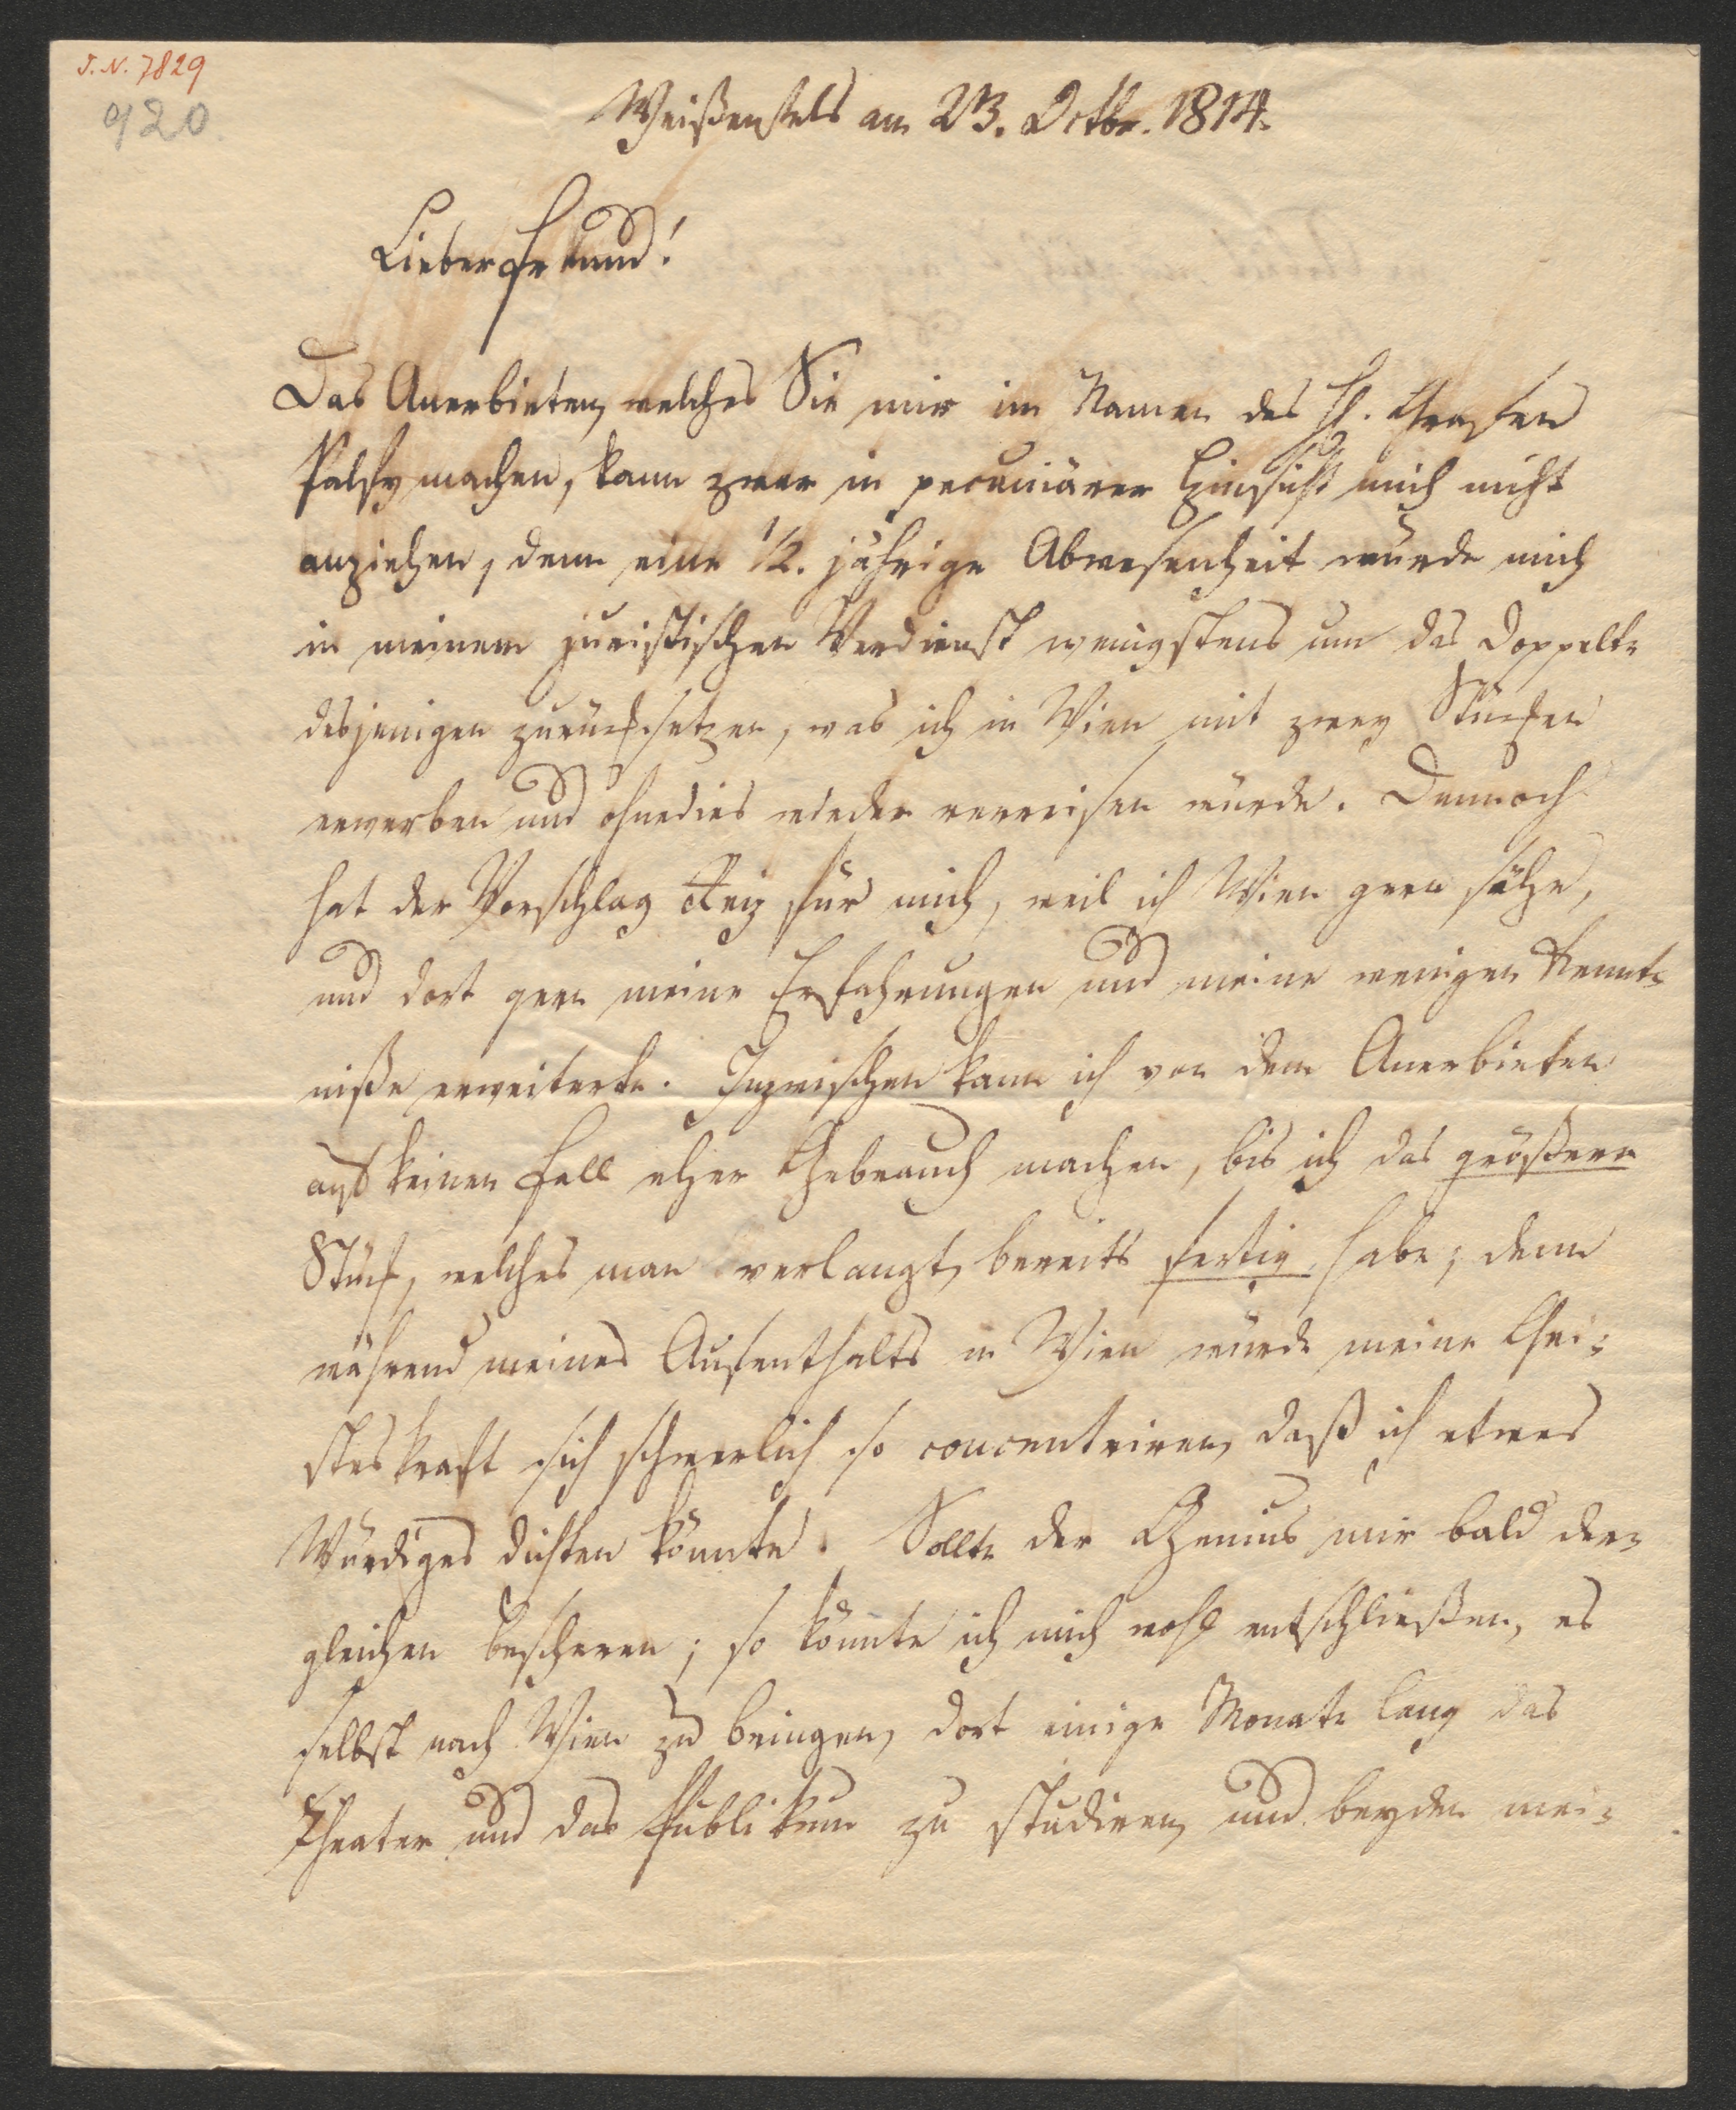 J.N. 7829
920.
Weißenfels am 23. Octbr. 1814.
Lieber Freund!
Das Anerbieten, welches Sie mir im Namen des H. Grafen
Palfy machen, kann zwar in pecuniärer Hinsicht mich nicht
anziehen, denn eine 1/2. jährige Abwesenheit würde mich
in meinem juristischen Verdienst wenigstens um das Doppelte
desjenigen zurücksetzen, was ich in Wien mit zwey Stücken
erwerben und ohnedies wieder verreisen würde. Dennoch
hat der Vorschlag Reiz für mich, weil ich Wien gern sähe,
und dort gern meine Erfahrungen und meine wenigen Kennt-
niße erweiterte. Inzwischen kann ich von dem Anerbieten
auf keinen Fall eher Gebrauch machen, bis ich das größere
Stück, welches man verlangt, bereits fertig habe; denn
während meines Aufenthalts in Wien würde meine Gei-
steskraft sich schwerlich so concentriren, daß ich etwas
Würdiges dichten könnte. Sollte der Genius mir bald der-
gleichen bescheren; so könnte ich mich wohl entschließen, es
selbst nach Wien zu bringen, dort einige Monate lang das
Theater und das Publikum zu studiren, und beyden mei-